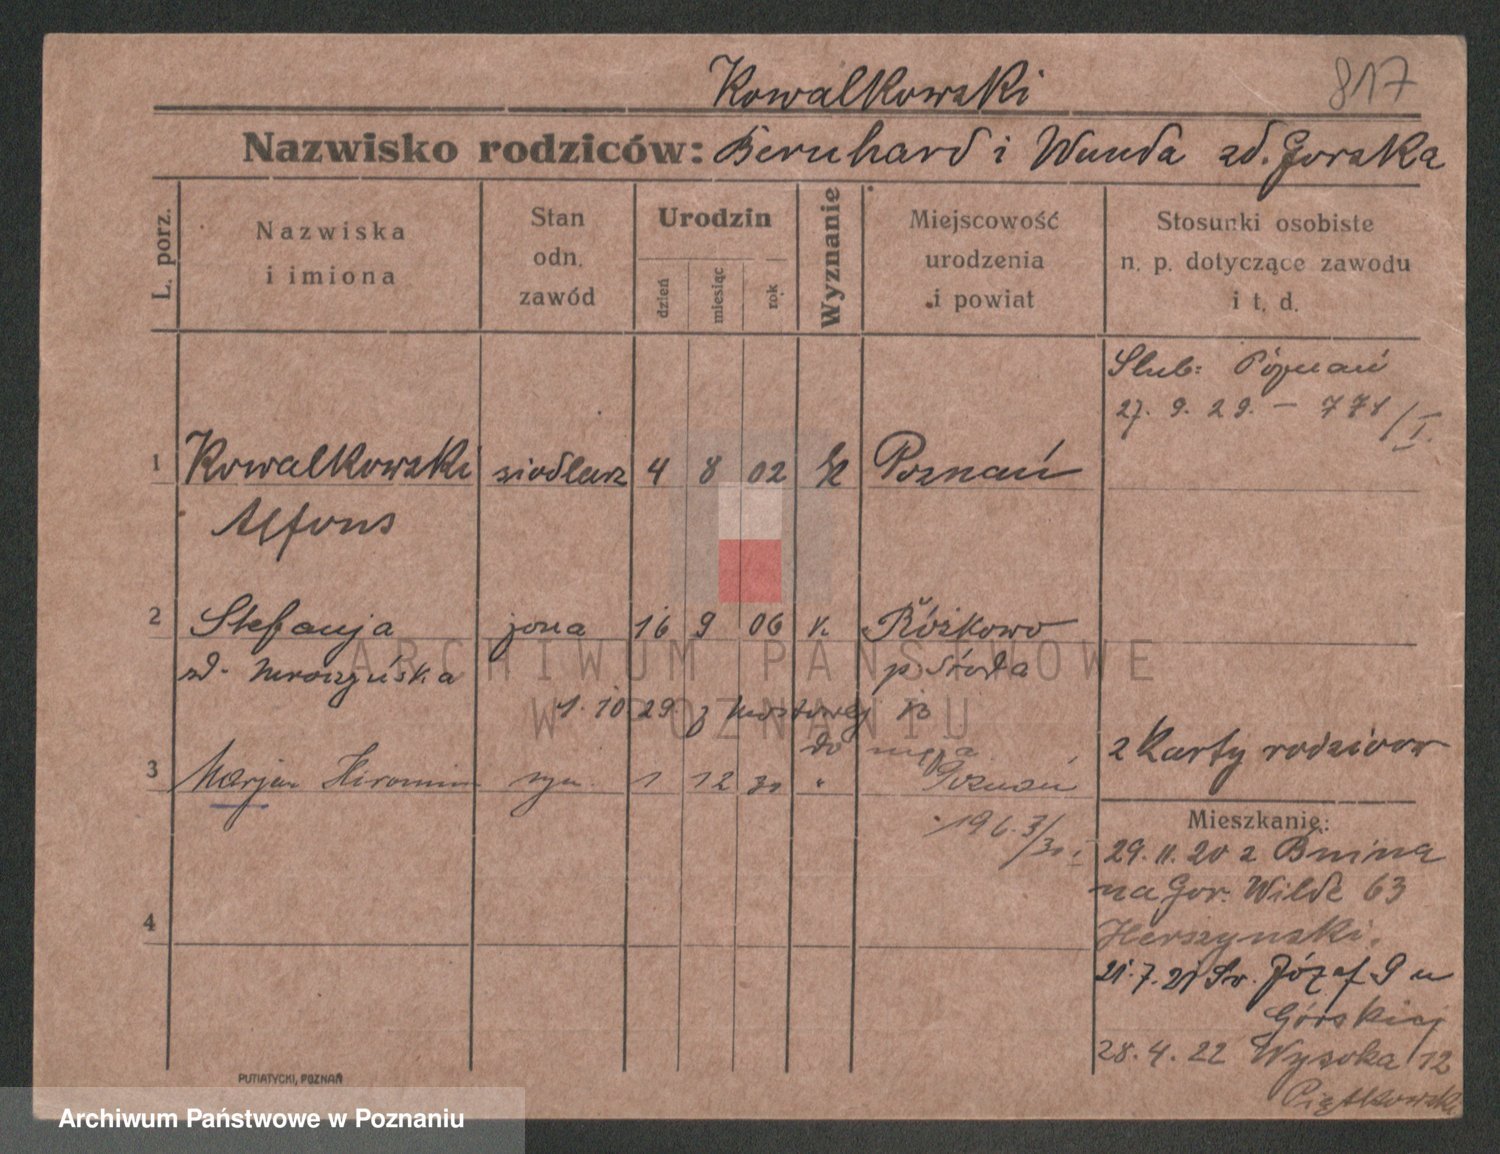 Kowalkowski 817
Nazwisko rodziców: Bernhard i Wanda zd. Gorska
L. porz.
Nazwiska
i imiona
Stan
odn.
zawód
Urodzin
dzień
miesiąc
rok
Wyznanie
Miejscowość
urodzenia
i powiat
Stosunki osobiste
n. p. dotyczące zawodu
i t. d.
Slub: Poznań
27. 9. 29. – 771/I.
1 Kowalkowski siodlarz 4 8 02 Poznań
Alfons
2 Stefanja żona 16 9 06 k. Różkowo
zd. Mroczyńska p. Środa
1. 10 29 z Mostowej 13
do męża
z Karty rodziców
3 Marjan Hieronim syn 1 12 30 " Poznań
196.3/30 I
Mieszkanie:
29. 11. 20 z Bnina
na Gor. Wilde 63
Herszynski.
21. 7. 21 Sw. Józef. 9 u
Górskiej
28. 4. 22 Wysoka 12
Piątkowski
4
PUTIATYCKI, POZNAŃ
ARCHIWUM PAŃSTWOWE
W POZNANIU
Archiwum Państwowe w Poznaniu